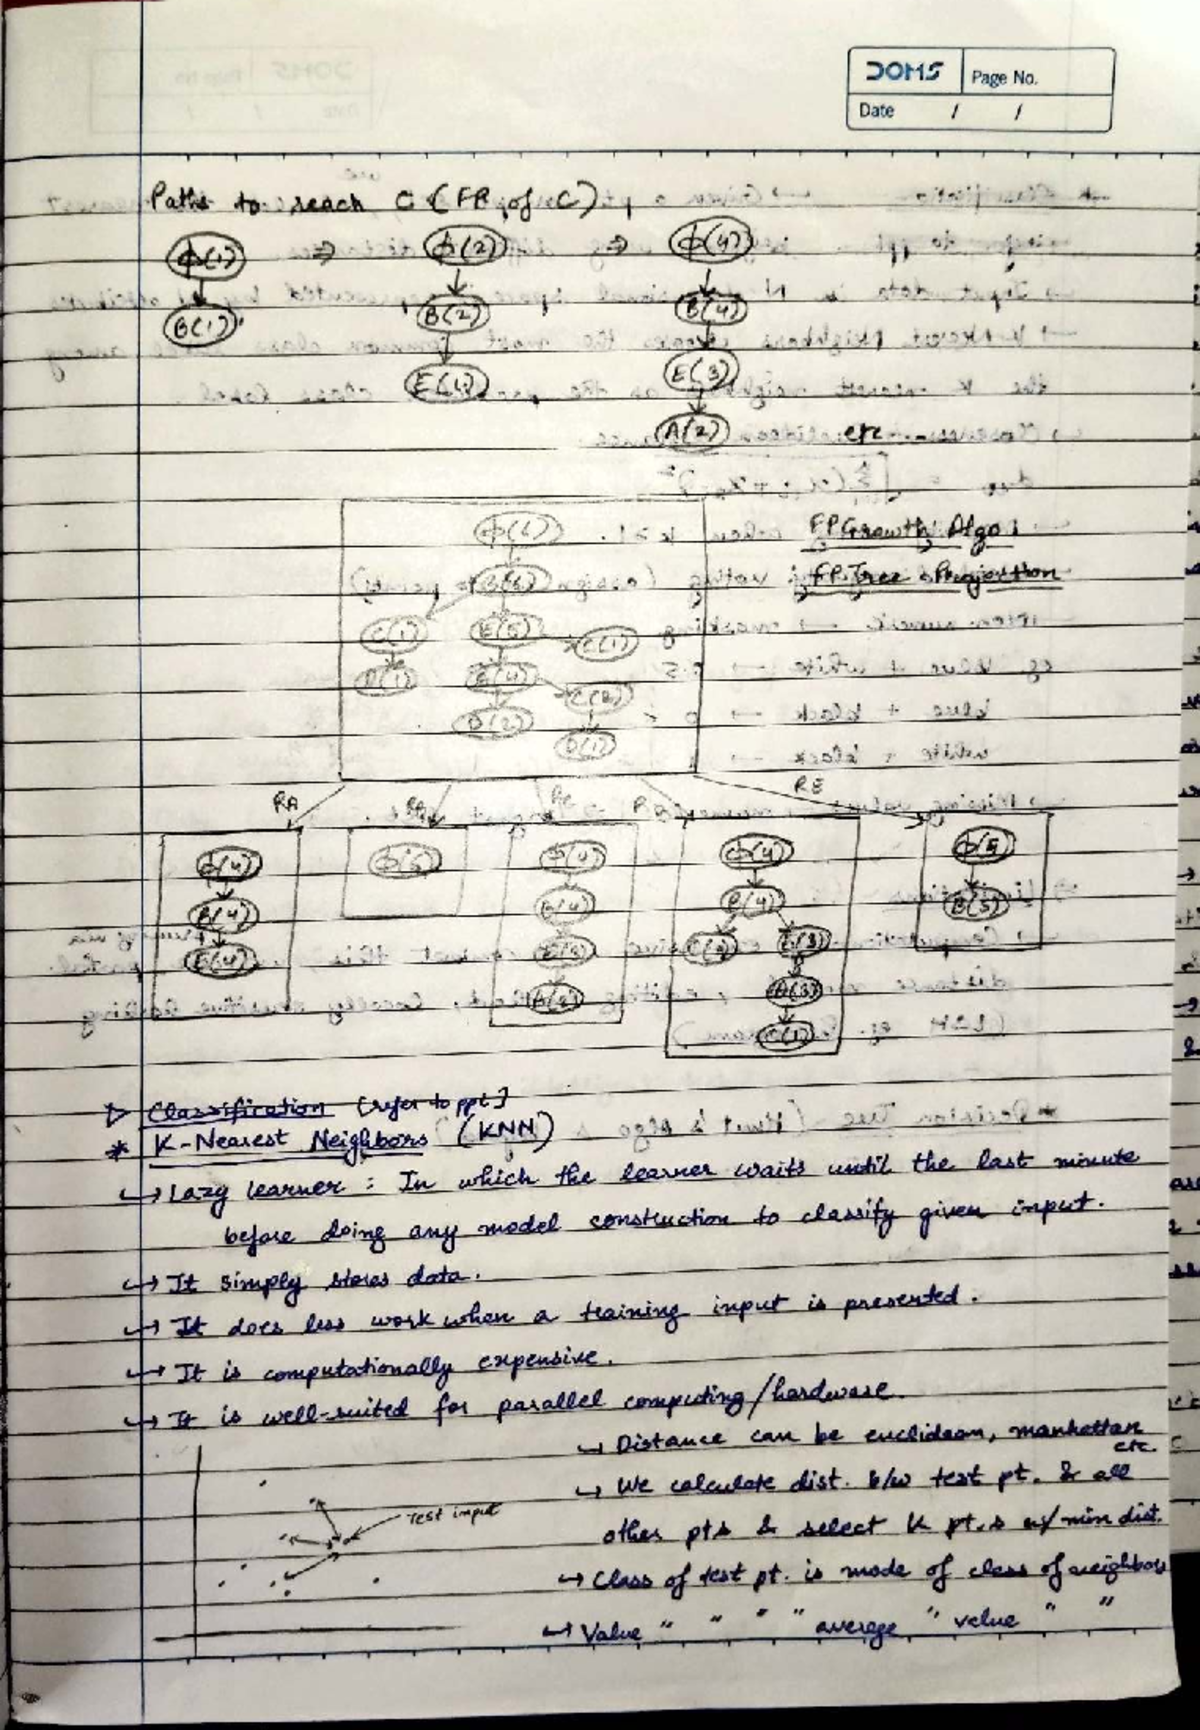 DOMS Page No.
Date / /
Paths to reach C (FP of C)
φ(1) ⇒ φ(2) ⇒ φ(4)
B(1) B(2) B(4)
E(3)
A(2) etc
FP Growth Algo :
FP Tree Projection
B(6)
C(1) E(5) C(1)
D(1) E(4) C(2)
D(2)
D(1)
RA RE
φ(4) φ(4) φ(4) φ(5
B(4) B(4) B(4) B(5)
E(4) E(3)
A(3)
C(1)
▷ Classification [refer to ppt]
* K-Nearest Neighbors (KNN)
↪ Lazy learner : In which the learner waits until the last minute
before doing any model construction to classify given input.
↪ It simply stores data.
↪ It does less work when a training input is presented.
↪ It is computationally expensive.
↪ It is well-suited for parallel computing/hardware.
↪ Distance can be euclidean, manhattan
etc.
↪ We calculate dist. b/w test pt. & all
Test input
other pts & select K pt.s w/ min dist.
↪ Class of test pt. is mode of class of neighbors
↪ Value " " " " average " value " "